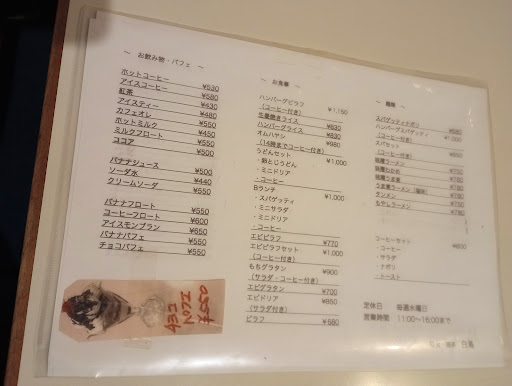 ～ お飲み物・パフェ ～
ホットコーヒー ¥530
アイスコーヒー ¥580
紅茶 ¥430
アイスティー ¥480
カフェオレ ¥550
ホットミルク ¥450
ミルクフロート ¥550
ココア ¥500
バナナジュース ¥500
ソーダ水 ¥440
クリームソーダ ¥550
バナナフロート ¥550
コーヒーフロート ¥600
アイスモンブラン ¥650
バナナパフェ ¥550
チョコパフェ ¥550
チョコ
パフェ
¥550
～ お食事 ～
ハンバーグピラフ ¥1,150
(コーヒー付き)
生姜焼きライス ¥830
ハンバーグライス ¥830
オムハヤシ ¥980
(14時までコーヒー付き)
うどんセット ¥1,000
・卵とじうどん
・ミニドリア
・コーヒー
Bランチ ¥1,000
・スパゲッティ
・ミニサラダ
・ミニドリア
・コーヒー
エビピラフ ¥770
エビピラフセット ¥1,000
(コーヒー付き)
もちグラタン ¥900
(サラダ・コーヒー付き)
エビグラタン ¥700
エビドリア ¥850
(サラダ付き)
ピラフ ¥580
～ 麺類 ～
スパゲッティナポリ
ハンバーグスパゲッティ ¥1,000
(コーヒー付き)
スパセット
(コーヒー付き)
タンメン
もやしラーメン
コーヒーセット ¥600
・コーヒー
・サラダ
・ナポリ
・トースト
定休日 毎週水曜日
営業時間 11:00～16:00まで